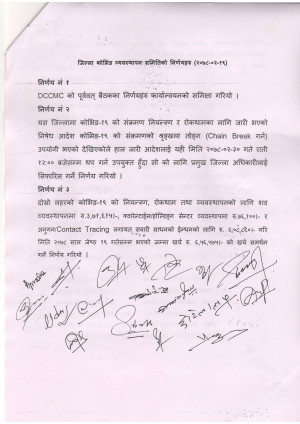 जिल्ला कोभिड व्यवस्थापन समितिको निर्णयहरु (२०७८-०२-१९)
निर्णय नं १
DCCMC को पूर्ववत् बैठकका निर्णयहरु कार्यान्वयनको समिक्षा गरियो ।
निर्णय नं २
यस जिल्लामा कोभिड-१९ को संक्रमण नियन्त्रण र रोकथामका लागि जारी भएको
निषेध आदेश कोभिड-१९ को संक्रमणको श्रृङ्खला तोड्न (Chain Break गर्न)
उपयोगी भएको देखिएकोले हाल जारी आदेशलाई यही मिति २०७८-०२-३० गते राती
१२:०० बजेसम्म थप गर्न उपयुक्त हुँदा सो को लागि प्रमुख जिल्ला अधिकारीलाई
सिफारिस गर्ने निर्णय गरियो ।
निर्णय नं ३
दोस्रो लहरको कोभिड-१९ को नियन्त्रण, रोकथाम तथा व्यवस्थापनको लागि शव
व्यवस्थापनमा रु.३,७१,६१५।-, क्वारेन्टाईन/होल्डिङ्ग सेन्टर व्यवस्थापनमा र
अनुगमन/Contact Tracing लगायत सवारी साधनको ईन्धनको लागि गरि
मिति २०७८ साल जेष्ठ १९ गतेसम्म भएको जम्मा खर्च रु. को खर्च समर्थन
गर्ने निर्णय गरियो ।